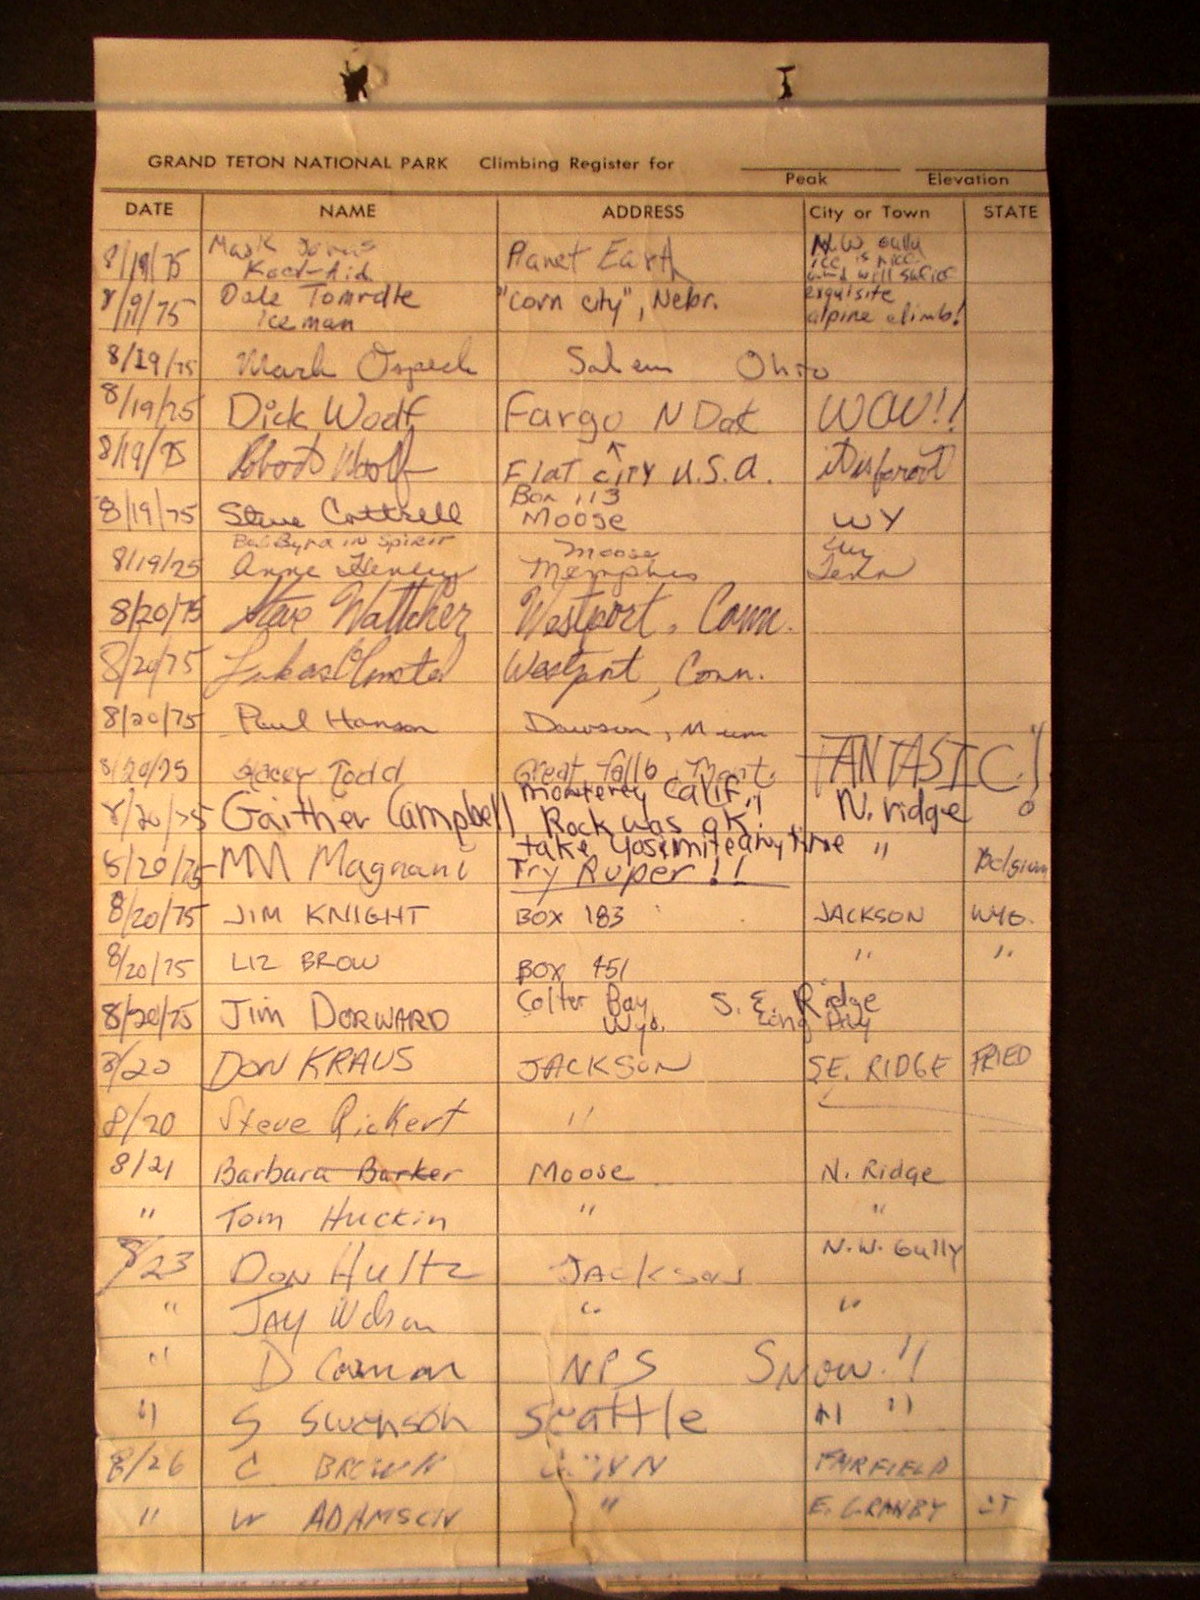 GRAND TETON NATIONAL PARK Climbing Register for
Peak Elevation
DATE NAME ADDRESS City or Town STATE
8/19/75 Mark Planet Earth N.W. gully
Kool-Aid ice is nice
8/19/75 Dale "Corn city", Nebr. exquisite
Iceman alpine climb!
8/19/75 Mark Salem Ohio
8/19/75 Dick Woolf Fargo N Dak WOW!!
8/19/75 Robert Woolf Flat CITY U.S.A.
Box 113
8/19/75 Steve Cottrell Moose WY
Bob Byrd in Spirit Moose
8/19/75 Anne Memphis Tenn
8/20/75 Westport, Conn.
8/20/75 Lukas Westport, Conn.
8/20/75 Paul Hanson Dawson, Minn
8/20/75 Stacey Todd Great Falls Mont. FANTASTIC!!
Monterey Calif.
8/20/75 Gaither Campbell Rock was OK! N. ridge
take Yosemite anytime
8/20/75 MM Magnani Try Ruper!! " Belgium
8/20/75 JIM KNIGHT BOX 183 JACKSON WYO.
8/20/75 LIZ BROW BOX 451 " "
8/20/75 Jim DORWARD Colter Bay S.E. Ridge
Wyo. Long Day
8/20 DON KRAUS JACKSON SE. RIDGE FRIED
8/20 Steve Rickert "
8/21 Barbara Barker Moose N. Ridge
" Tom Huckin " "
8/23 Don Hultz Jackson N.W. Gully
" JAY Wilson " "
" D NPS Snow!!
" S Swenson Seattle " "
8/26 C BROWN CONN FAIRFIELD
" W ADAMSON " E. GRANBY CT